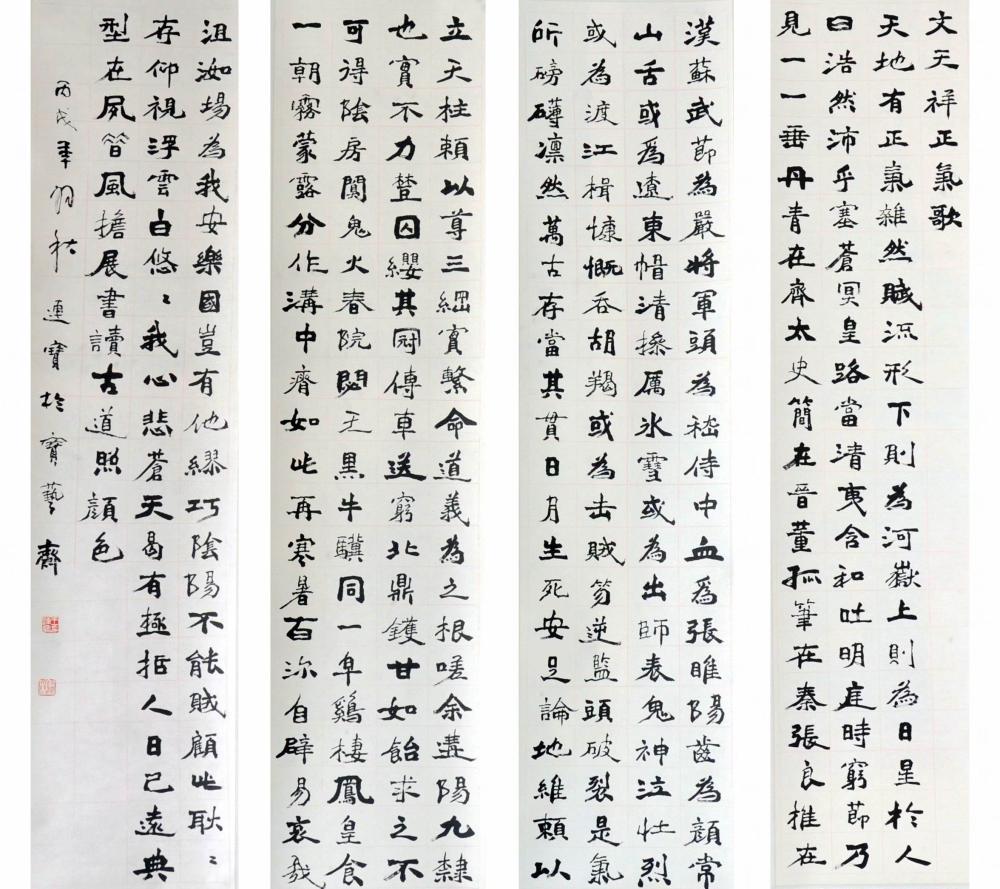 文天祥正氣歌
天地有正氣雜然賦流形下則為河嶽上則為日星於人
曰浩然沛乎塞蒼冥皇路當清夷含和吐明庭時窮節乃
見一一垂丹青在齊太史簡在晉董狐筆在秦張良椎在
漢蘇武節為嚴將軍頭為嵇侍中血為張睢陽齒為顏常
山舌或為遼東帽清操厲冰雪或為出師表鬼神泣壯烈
或為渡江楫慷慨吞胡羯或為击賊笏逆監頭破裂是氣
所磅礴凜然萬古存當其貫日月生死安足論地維賴以
立天柱賴以尊三綱實繫命道義為之根嗟余遘陽九隸
也實不力楚囚纓其冠傳車送窮北鼎鑊甘如飴求之不
可得陰房闃鬼火春院閟天黑牛驥同一皁雞棲鳳皇食
一朝霧蒙露分作溝中瘠如此再寒暑百沴自辟易哀哉
沮洳場為我安樂國豈有他繆巧陰陽不能賊顧此耿〻
存仰視浮雲白悠〻我心悲蒼天曷有極哲人日已遠典
型在夙昔風檐展書讀古道照顏色
丙戌年初秋連寶於寶藝齋